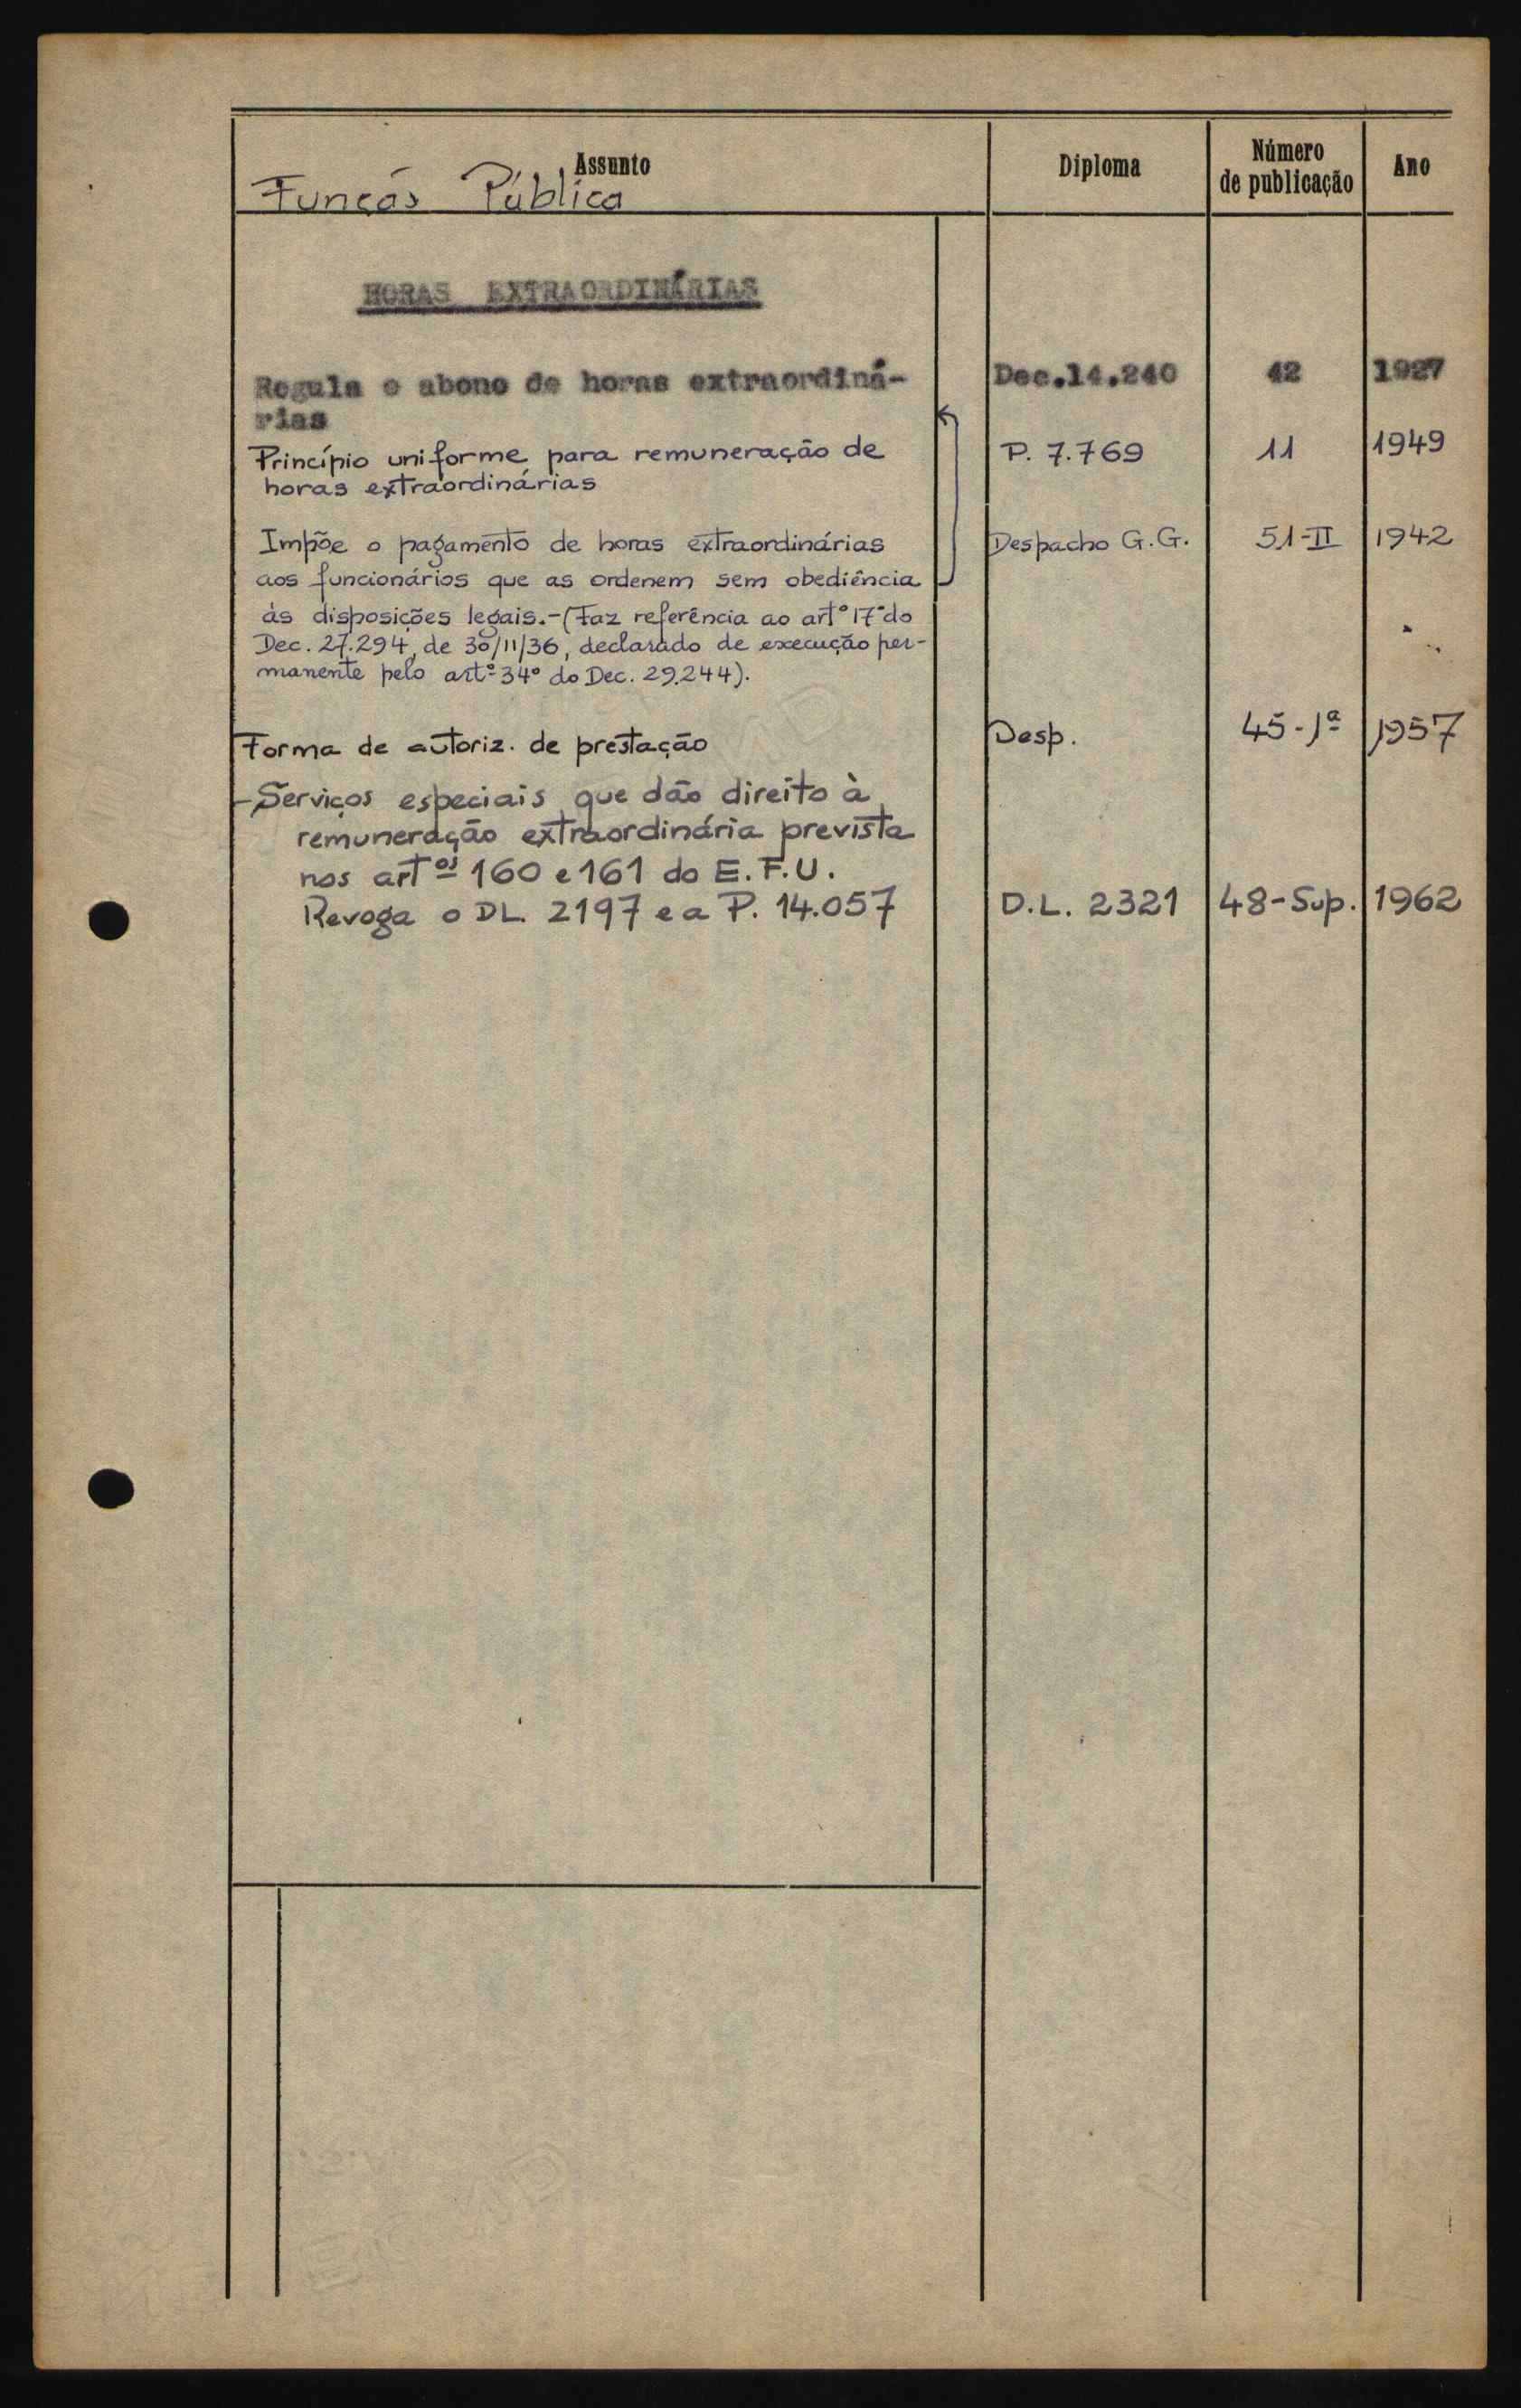 Assunto Diploma Número de publicação Ano
Função Pública
HORAS EXTRAORDINÁRIAS
Regula o abono de horas extraordiná- Dec.14.240 42 1927
rias
Princípio uniforme para remuneração de P. 7.769 11 1949
horas extraordinárias
Impõe o pagamento de horas extraordinárias Despacho G.G. 51-II 1942
aos funcionários que as ordenem sem obediência
às disposições legais.-(Faz referência ao artº 17º do
Dec. 27.294, de 30/11/36, declarado de execução per-
manente pelo artº 34º do Dec. 29.244).
Forma de autoriz. de prestação Desp. 45-1ª 1957
-Serviços especiais que dão direito à
remuneração extraordinária prevista
nos artºs 160 e 161 do E.F.U.
Revoga o DL. 2197 e a P. 14.057 D.L. 2321 48-Sup. 1962